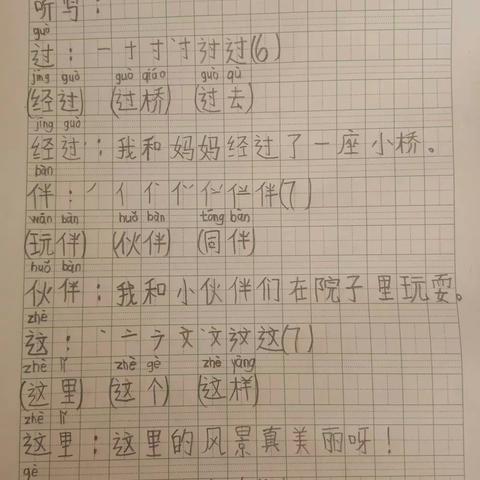 听写：
guò
过：一寸寸寸过过(6)
jīng guò guò qiáo guò qù
(经过) (过桥) (过去)
jīng guò
经过：我和妈妈经过了一座小桥。
bàn
伴：丿亻亻伴(7)
wán bàn huǒ bàn tóng bàn
(玩伴) (伙伴) (同伴)
huǒ bàn
伙伴：我和小伙伴们在院子里玩耍。
zhè
这：丶亠文这这(7)
zhè lǐ zhè gè zhè yàng
(这里) (这个) (这样)
zhè lǐ
这里：这里的风景真美丽呀！
gè